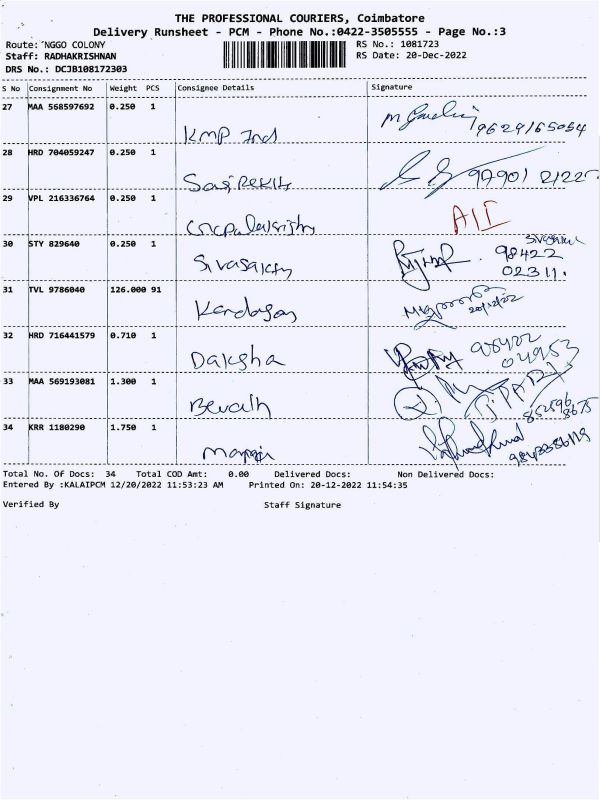 THE PROFESSIONAL COURIERS, Coimbatore
Delivery Runsheet - PCM - Phone No.:0422-3505555 - Page No.:3
Route: NGGO COLONY RS No.: 1081723
Staff: RADHAKRISHNAN RS Date: 20-Dec-2022
DRS No.: DCJB108172303
S No Consignment No Weight PCS Consignee Details Signature
27 MAA 568597692 0.250 1
KMP Ind 9629165054
28 HRD 704059247 0.250 1
97901 21225
29 VPL 216336764 0.250 1
30 STY 829640 0.250 1
Sivasakthy 98422
02311.
31 TVL 9786040 126.000 91
20/12/22
32 HRD 716441579 0.710 1
Daksha 98422
04953
33 MAA 569193081 1.300 1
34 KRR 1180290 1.750 1
Total No. Of Docs: 34 Total COD Amt: 0.00 Delivered Docs: Non Delivered Docs:
Entered By :KALAIPCM 12/20/2022 11:53:23 AM Printed On: 20-12-2022 11:54:35
Verified By Staff Signature